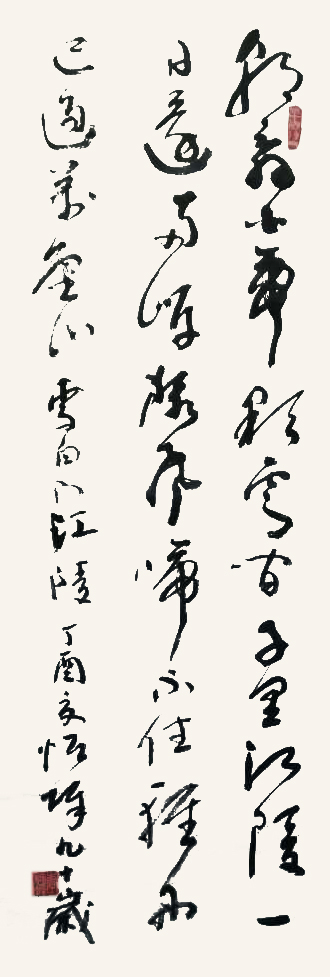 朝辞白帝彩雲间千里江陵一
日還两岸猿声啼不住軽舟
已過萬重山 李白下江陵 丁酉 九十歲